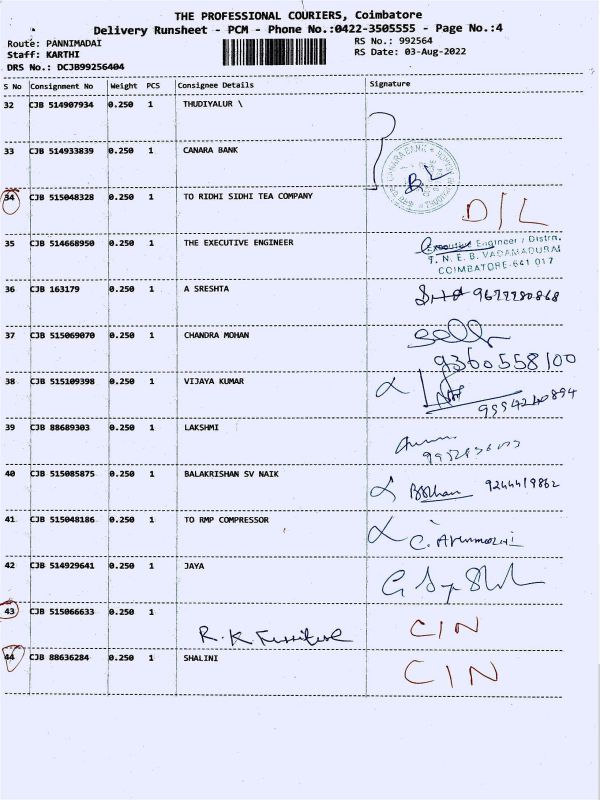 THE PROFESSIONAL COURIERS, Coimbatore
Delivery Runsheet - PCM - Phone No.:0422-3505555 - Page No.:4
Route: PANNIMADAI RS No.: 992564
Staff: KARTHI RS Date: 03-Aug-2022
DRS No.: DCJB99256404
S No Consignment No Weight PCS Consignee Details Signature
32 CJB 514907934 0.250 1 THUDIYALUR \
33 CJB 514933839 0.250 1 CANARA BANK
CANARA BANK
34 CJB 515048328 0.250 1 TO RIDHI SIDHI TEA COMPANY D/L
35 CJB 514668950 0.250 1 THE EXECUTIVE ENGINEER Executive Engineer / Distrn.
T. N. E. B. VADAMADURAI
COIMBATORE-641 017
36 CJB 163179 0.250 1 A SRESHTA
37 CJB 515069070 0.250 1 CHANDRA MOHAN
9360558100
38 CJB 515109398 0.250 1 VIJAYA KUMAR
9994240894
39 CJB 88689303 0.250 1 LAKSHMI
40 CJB 515085875 0.250 1 BALAKRISHAN SV NAIK 9244419862
41 CJB 515048186 0.250 1 TO RMP COMPRESSOR
42 CJB 514929641 0.250 1 JAYA
43 CJB 515066633 0.250 1 CIN
R. K
44 CJB 88636284 0.250 1 SHALINI CIN